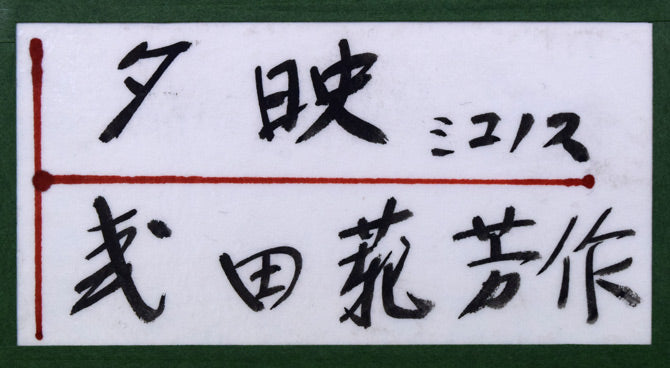 夕映 ミコノス
武田菀芳作